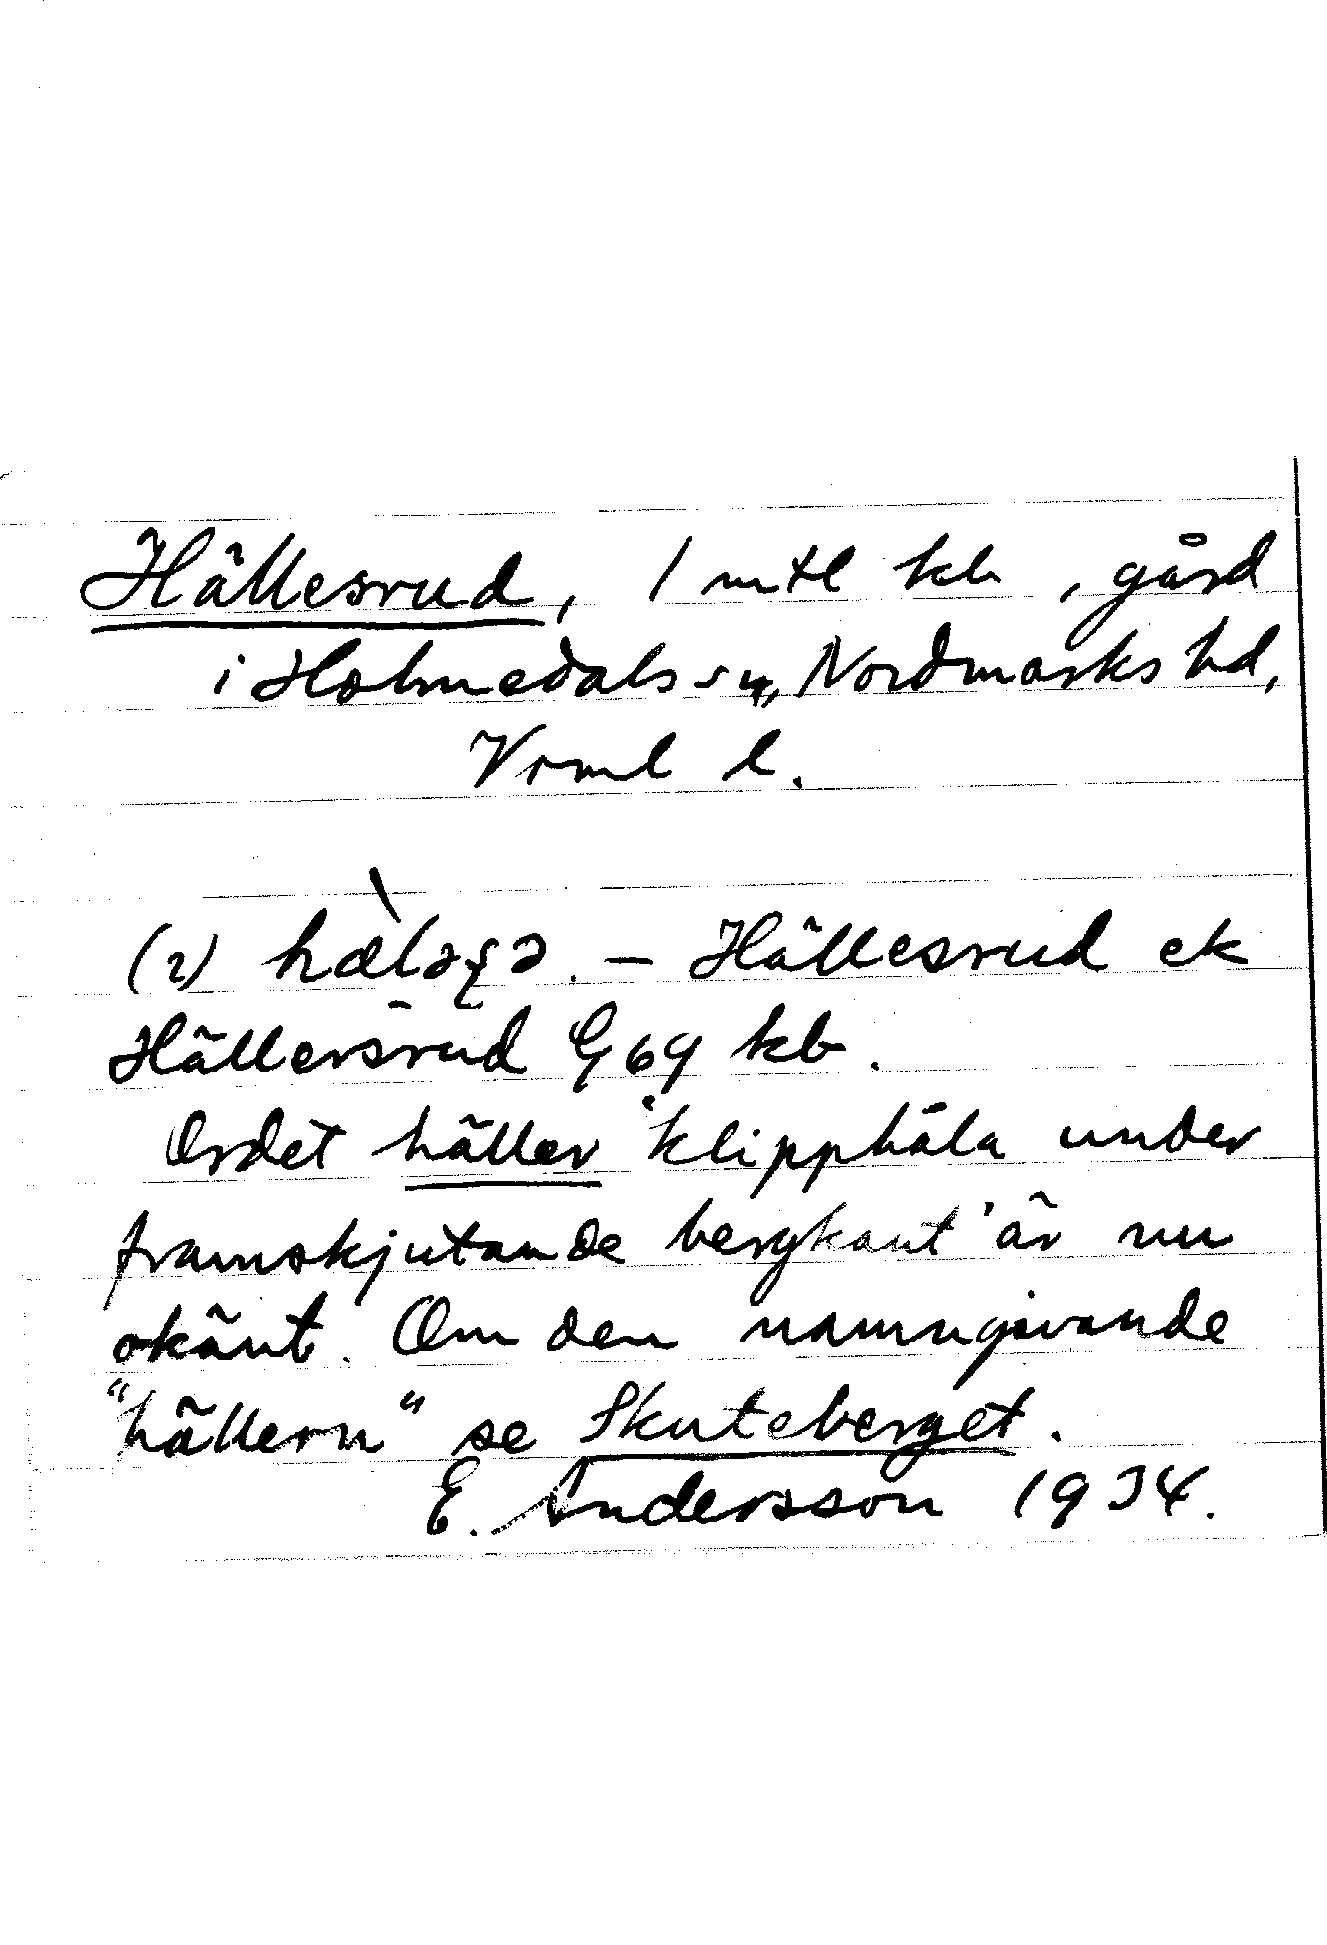 Hällesrud, 1 mtl kb, gård
i Holmedals sn, Nordmarks hd,
Vrml l.
(2) – Hällesrud ek
Hällersrud G 69 kb.
Ordet häller 'klipphåla under
framskjutande bergkant' är nu
okänt. Om den namngivande
"hällern" se Skuteberget.
E. Andersson 1934.